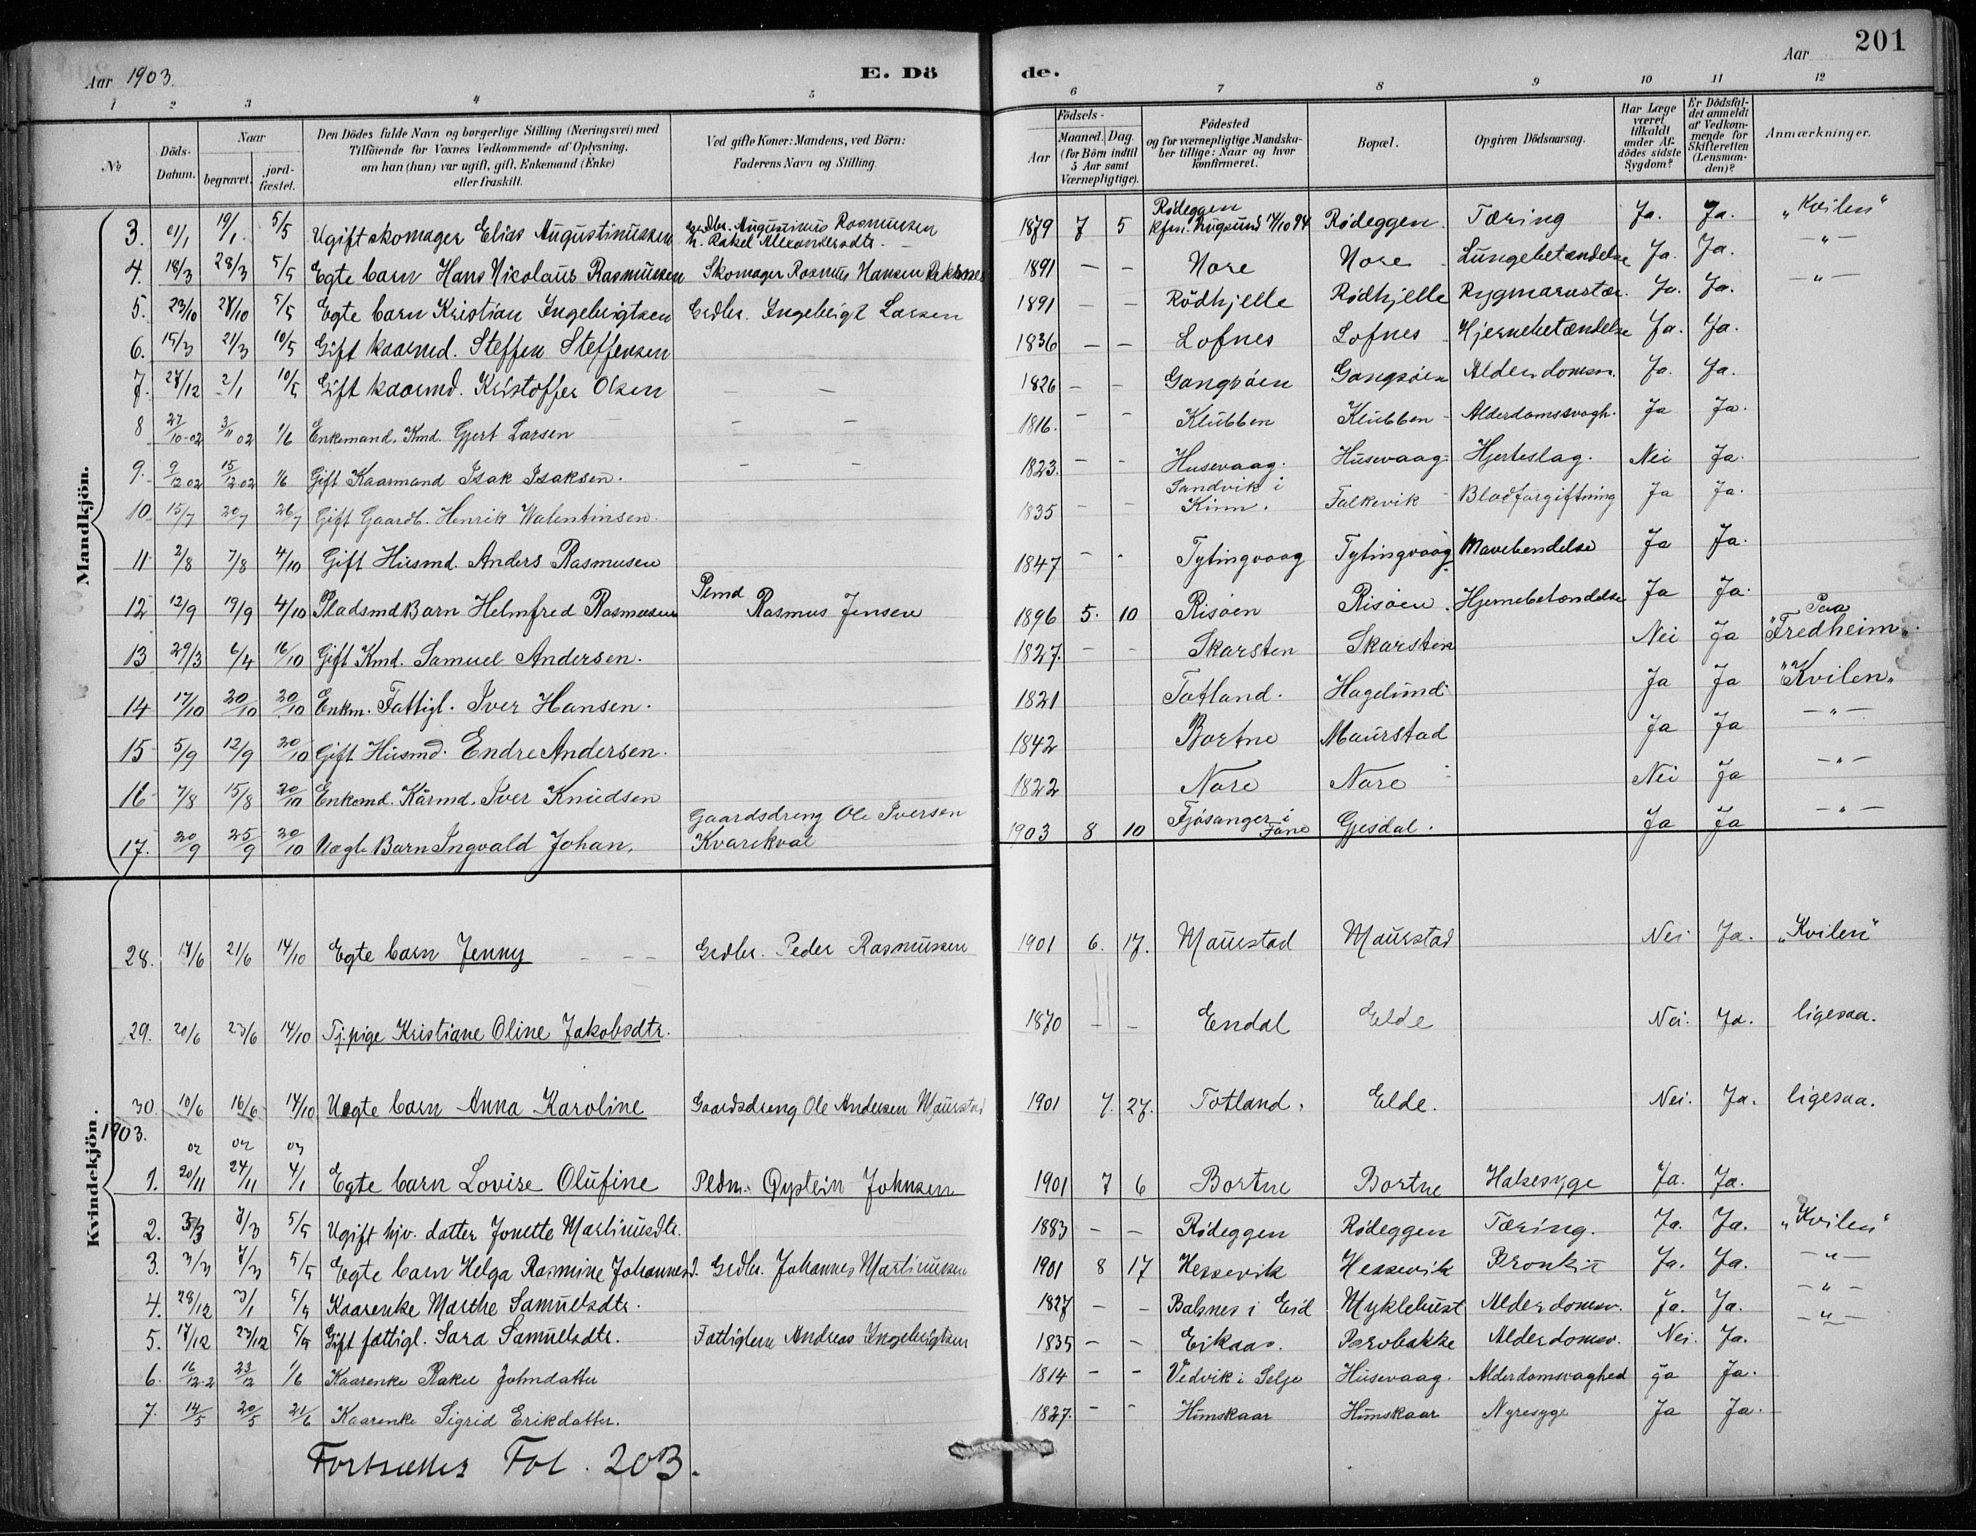 Aar 1903. E. Dö de. Aar 201
1 2 3 4 5 6 7 8 9 10 11 12
№ Döds-Datum. Naar begravet. jord-fæstet. Den Dödes fulde Navn og borgerlige Stilling (Næringsvei) med Tilföiende for Voxnes Vedkommende af Oplysning, om han (hun) var ugift, gift, Enkemand (Enke) eller fraskilt. Ved gifte Koner: Mandens, ved Börn: Faderens Navn og Stilling. Födsels- Aar Maaned. Dag. (for Börn indtil 5 Aar samt Værnepligtige). Födested og for værnepligtige Mandskaber tillige: Naar og hvor konfirmeret. Bopæl. Opgiven Dödsaarsag. Har Læge været tilkaldt under Afdödes sidste Sygdom? Er Dödsfaldet anmeldt af Vedkommende for Skifteretten (Lensmanden)? Anmærkninger.
Mandkjön.
3. 19/1 5/5 Ugift skomager Elias Augustinussen Grdbr. Augustinus Rasmussen h. Rakel Alexandersdtr. 1879 7 5 Rødeggen Kfm. Rugsund 14/10 94 Rødeggen. Tæring Ja. Ja. "Kvilen"
4. 18/3 28/3 5/5 Egte barn Hans Nicolaus Rasmussen Skomager Rasmus Hansen 1891 — — Nore Nore Lungebetændelse Ja. Ja. — " —
5. 23/10 28/10 5/5 Egte barn Kristian Ingebrigtsen Grdbr. Ingebrigt Larsen 1891 — — Rödhjelle Rødhjelle Rygmarvstær. Ja. Ja. — " —
6. 15/3 21/3 10/5 Gift kaarmd. Steffen Steffensen 1836 — — Lofnes Lofnes Hjernebetændelse Ja. Ja.
7. 27/12 2/1 10/5 Gift kaarmd. Kristoffer Olsen — — 1826 — — Gangsöen Gangsöen Alderdomsv. Ja. Ja.
8 27/10-02 3/11 02 1/6 Enkemand. Kmd. Gjert Larsen — — 1816. - - Klubben Klubben Alderdomssvagh. Ja Ja.
9. 9/12 02 15/12 02 1/6 Gift Kaarmand Isak Isaksen. — — 1823. - - Husevaag. Husevaag Hjerteslag. Nei Ja.
10 15/7 20/7 26/7 Gift Gaardb. Henrik Valentinsen. 1835 - - Sandvik i Kinn. Falkevik Blodforgiftning Ja Ja.
11 2/8 7/8 4/10 Gift Husmd. Anders Rasmusen 1847 - - Tytingvaag Tytingvaag Mavebendelse Ja Ja.
12 12/9 19/9 4/10 Pladsmd Barn Helmfred Rasmussen Plmd Rasmus Jensen 1896 5. 10 Risöen Risöen. Hjernebetændelse Ja Ja.
13 29/3 6/4 16/10 Gift Kmd. Samuel Andersen. 1827. - - Skarsten Skarsten Nei Ja Paa "Fredheim".
14 17/10 20/10 20/10 Enkm. Fattigl. Iver Hansen. 1821 Totland. Hagelund Ja Ja "Kvilen"
15 5/9 12/9 20/10 Gift Husmd. Endre Andersen. 1842 Bortne Maurstad Ja Ja — " —
16 7/8 15/8 20/10 Enkemd. Kårmd. Iver Knudsen 1822 Nore Nore Nei Ja — " —
17. 20/9 25/9 20/10 Uægt Barn Ingvald Johan. Gaardsdreng Ole Iversen Kvarekval 1903 8 10 Fjösanger i Fane Gjesdal. Ja Ja — " —
Kvindekjön.
28. 17/6 21/6 14/10 Egte barn Jenny — — — Grdbr. Peder Rasmussen 1901 6. 17. Maurstad Maurstad Nei Ja. "Kvilen"
29. 20/6 23/6 14/10 Tj.pige Kristiane Oline Jakobsdtr. 1870 - - Endal Elde Nei. Ja. ligesaa.
30. 10/6 16/6 14/10 Uegte barn Anna Karoline Gaardsdreng Ole Andersen Maurstad 1901 7. 27. Totland. Elde. Nei. Ja. ligesaa.
1903.
1. 20/11 02 24/11 02 4/1 03 Egte barn Lovise Olufine Pldm. Øystein Johnsen 1901 7 6 Bortne Bortne Halsesyge Ja. Ja.
2. 3/3 7/3 5/5 Ugift hjv. datter Jonette Martinusdtr. 1883 — — Rødeggen Rødeggen Tæring. Ja. Ja. "Kvilen"
3. 3/3 7/3 5/5 Egte barn Helga Rasmine Johannesd. Grdbr. Johannes Martinussen 1901 8 17 Hessevik Hessevik Bronkit Ja. Ja. — " —
4. 28/12 3/1 5/5 Kaarenke Marthe Samuelsdtr. 1827 — — Balsnes i Eid Myklebust Alderdomsv. Ja. Ja. — " —
5. 17/12 23/12 5/5 Gift fattigl. Sara Samuelsdtr. Fattiglem Andreas Ingebrigtsen 1835 — — Eikaas. Alderdomsv. Nei. Ja. — " —
6. 16/12-2 23/12 1/6 Kaarenke Rakel Johndatter 1814 - - Vedvik i Selje Husevaag. Alderdomsvaghed Ja Ja.
7. 14/5 20/5 21/6 Kaarenke Sigrid Erikdatter. 1827. - - Humskaar Humskaar Nyresyge Ja Ja.
Fortsættes Fol. 203.